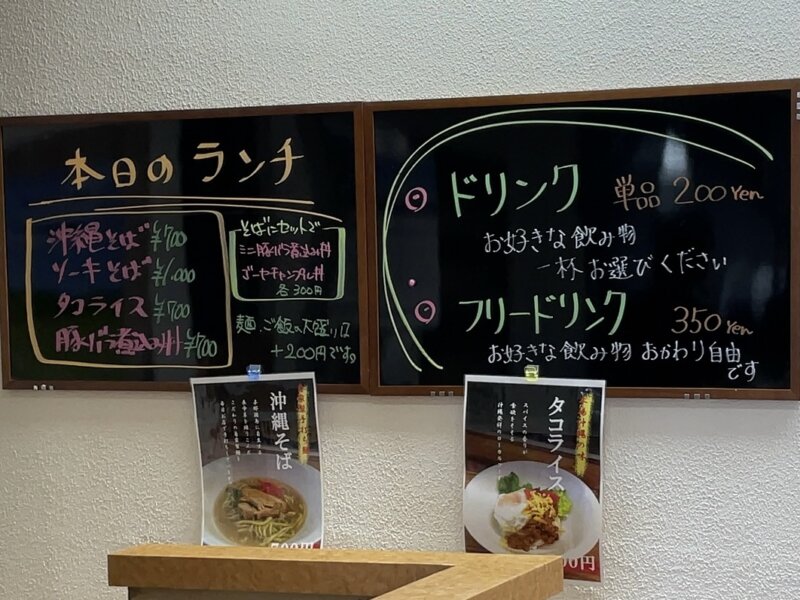 本日の ランチ
沖縄そば ¥700
ソーキそば ¥1,000
タコライス ¥700
豚バラ煮込み丼 ¥700
そばにセットで
ミニ豚バラ煮込み丼
ゴーヤチャンプル丼
各300円
麺、ご飯の大盛りは
+200円です。
ドリンク 単品 200Yen
お好きな飲み物
一杯お選びください
フリードリンク 350Yen
お好きな飲み物 おかわり自由
です
沖縄そば
700円
タコライス
スパイスの香りが
食欲をそそる
00円